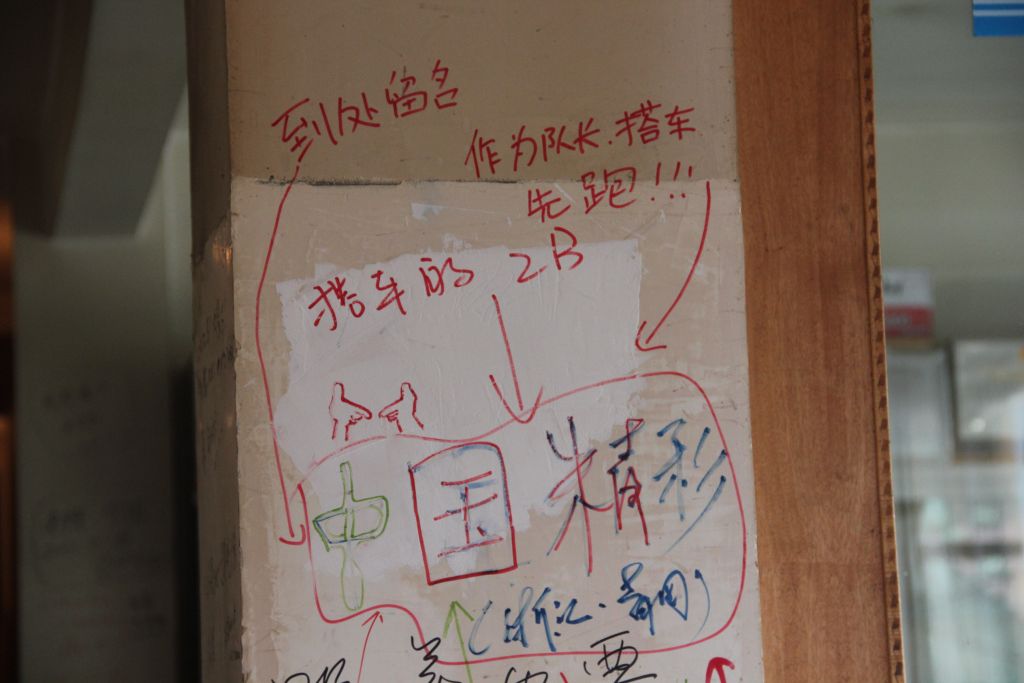 到处留名
作为队长.搭车
先跑!!!
搭车的 2B
中国精彩